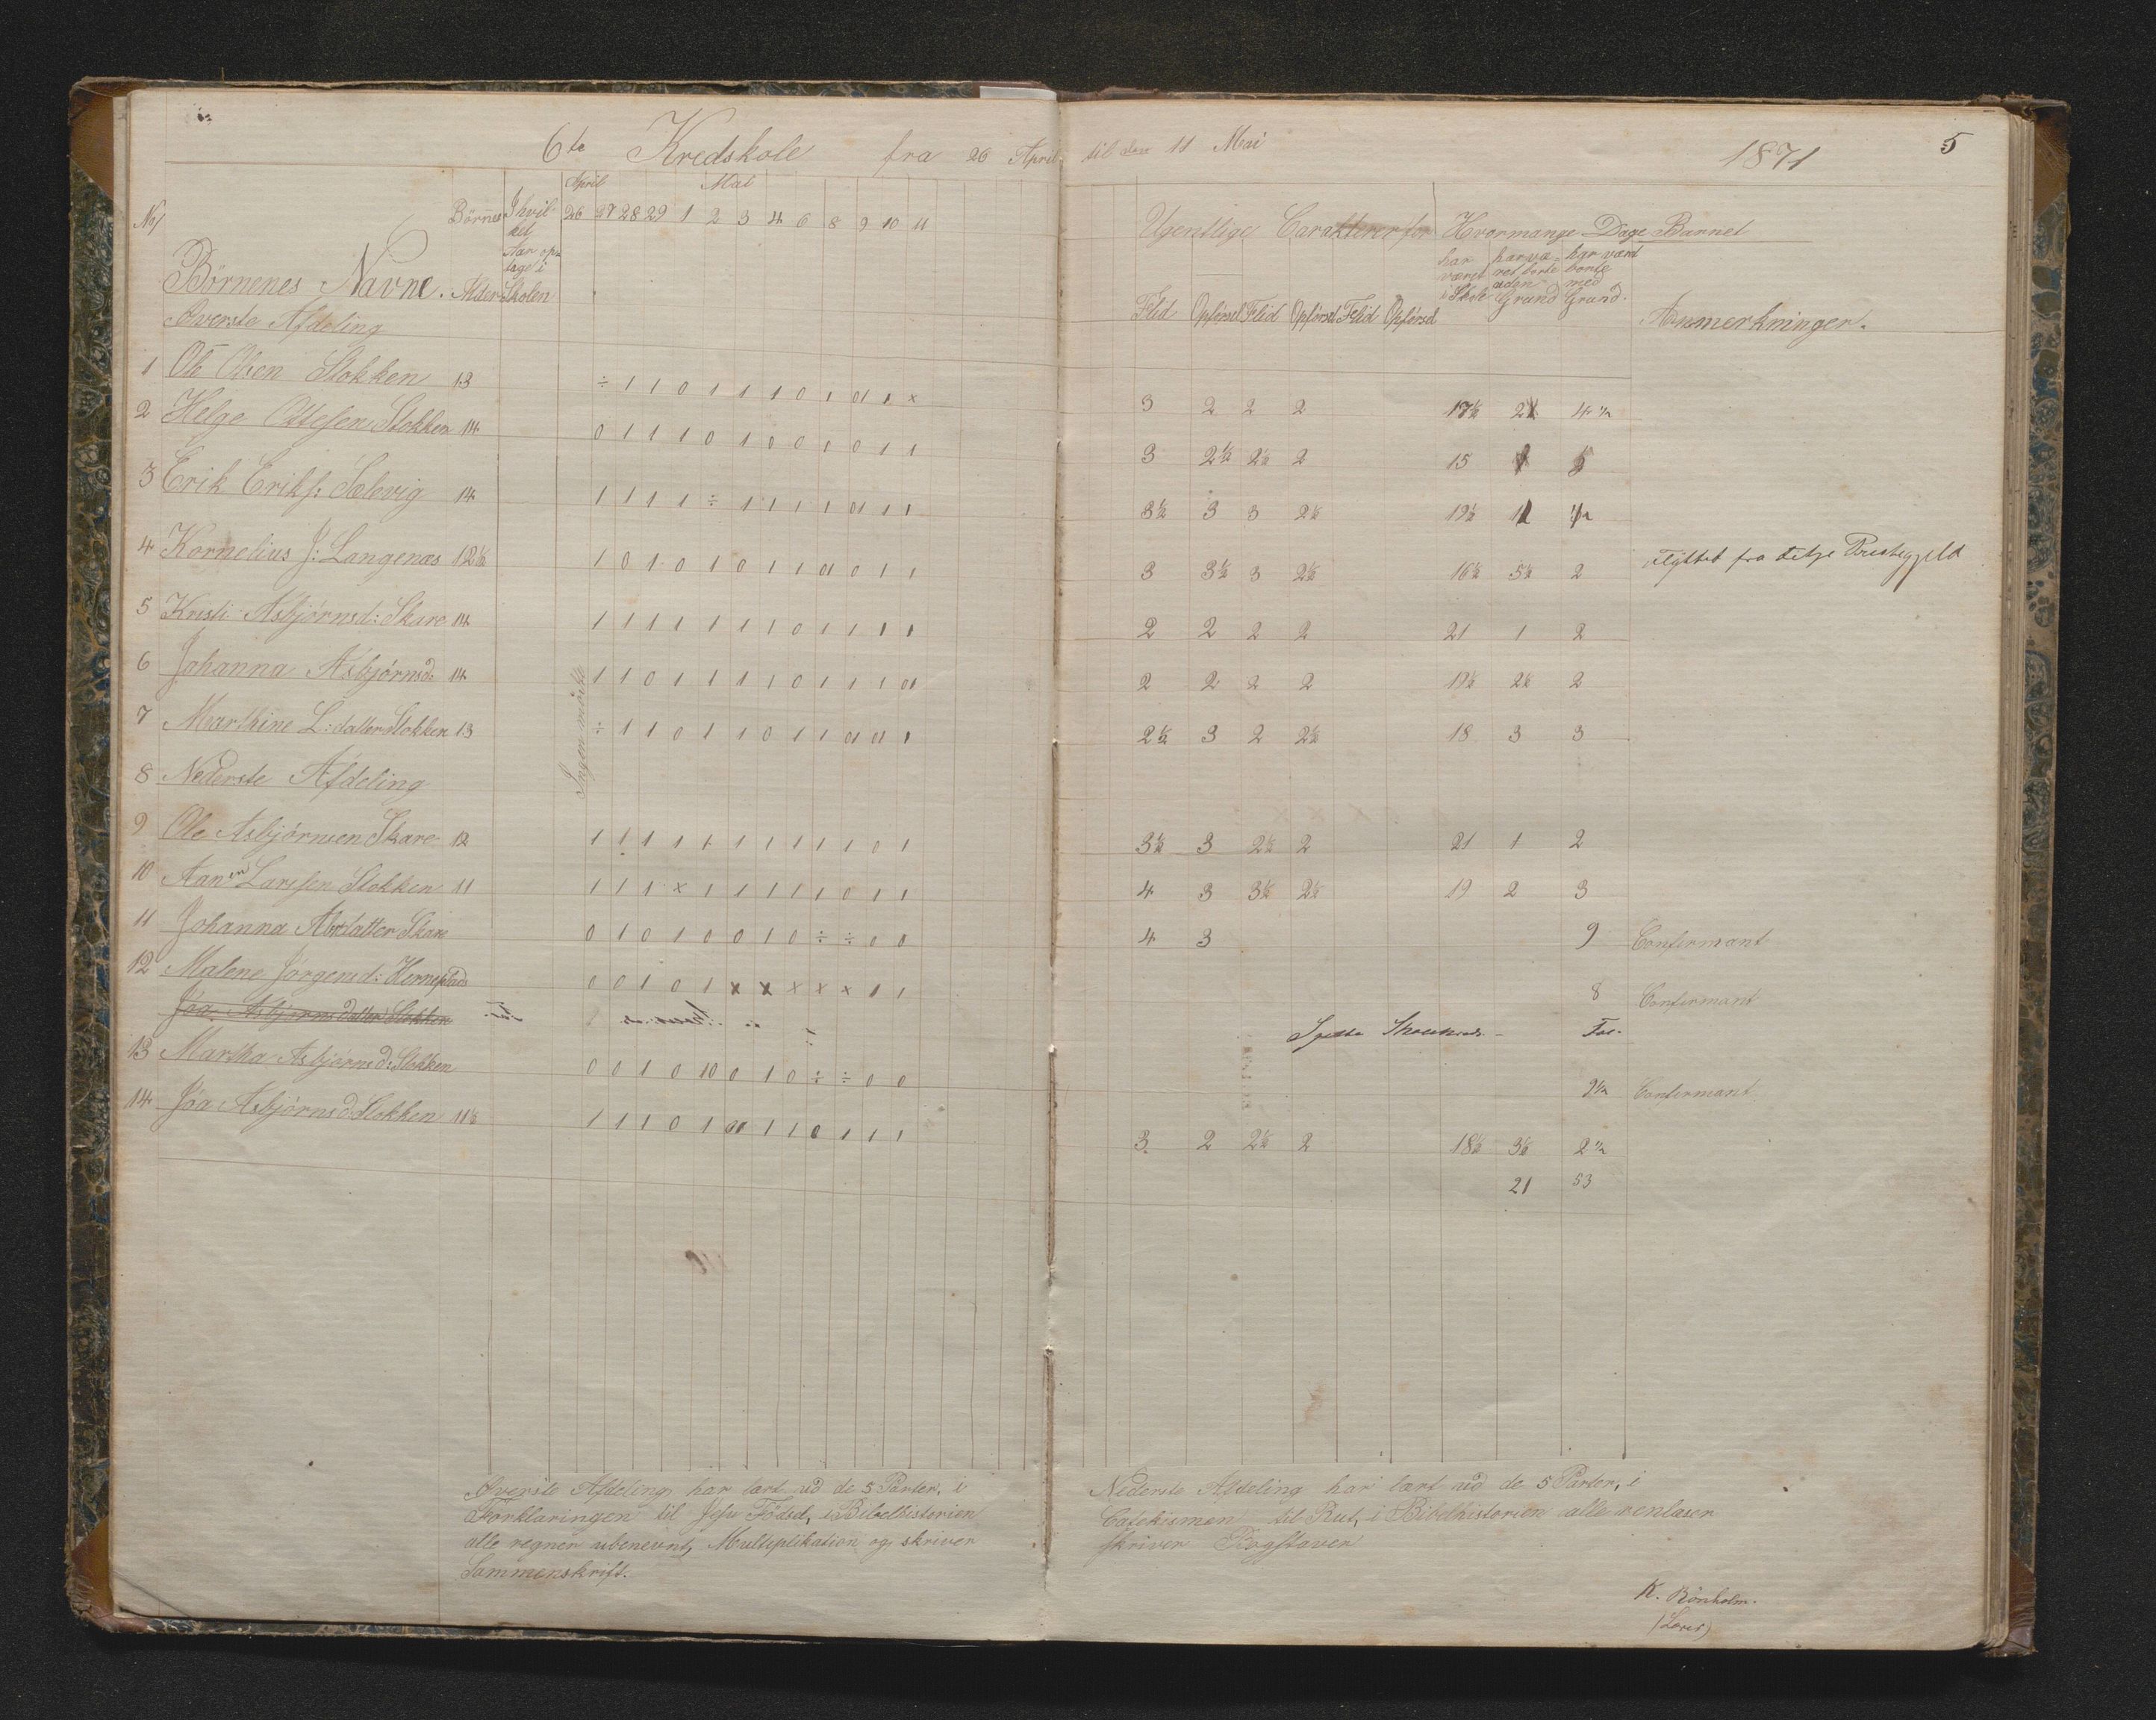 6te Kredskole fra 26 April til den 11 Mai 1871 5
No/ Börnenes Navne. Börnes Alder I hvilket Aar optage i Skolen April Mai
26 27 28 29 1 2 3 4 6 8 9 10 11
Ugentlige Carakterer for Hvormange Dage Barnet
Flid Opførsel Flid Opførsel Flid Opførsel har været i Skole har været borte uden Grund har vært borte med Grund. Anmerkninger.
Øverste Afdeling
1 Ole Olsen Stokken 13 ÷ 1 1 0 1 1 1 1 0 1 01 1 x 3 2 2 2 17½ 2 4½
2 Helge Ottesen Stokken 14 0 1 1 1 0 1 0 0 0 1 0 1 1 3 2½ 2½ 2 15
3 Erik Eriks: Sælevig 14 1 1 1 1 ÷ 1 1 1 1 01 1 1 3½ 3 3 2½ 19½ 1 ½
4 Kornelius J: Langenæs 12½ 1 0 1 0 1 0 1 1 01 0 1 1 3 3½ 3 2½ 16½ 5½ 2 flyttet fra dette Præstegjeld
5 Kristi Asbjørnsd: Skare 14 1 1 1 1 1 1 1 0 1 1 1 1 2 2 2 2 21 1 2
6 Johanna Asbjørnsd: 14 1 1 0 1 1 1 1 0 1 1 1 01 2 2 2 2 19½ 2½ 2
7 Marthine L: datter Stokken 13 ÷ 1 1 0 1 1 0 1 1 01 01 1 2½ 3 2 2½ 18 3 3
Ingen mödte
8 Nederste Afdeling
9 Ole Asbjørnsen Skare 12 1 1 1 1 1 1 1 1 1 1 0 1 3½ 3 2½ 2 21 1 2
10 Aanen Larssen Stokken 11 1 1 1 x 1 1 1 1 1 0 1 1 4 3 3½ 2½ 19 2 3
11 Johanna datter Skare 0 1 0 1 0 0 1 0 ÷ ÷ 0 0 4 3 9 Confirmant
12 Malene Jørgensd: 0 0 1 0 1 x x x x x 1 1 8 Confirmant
Joa Asbjørnsdatter Stokken
13 Martha Asbjørnsd: Stokken 0 0 1 0 10 0 1 0 ÷ ÷ 0 0 9½ Confirmant
14 Joa Asbjørnsd Stokken 11½ 1 1 1 0 1 01 1 1 0 1 1 1 3 2 2½ 2 18½ 3½ 2½
21 53
Øverste Afdeling har lært ud de 5 Parter, i
Forklaringen til Jesu Fødsel, i Bibelhistorien
alle regner ubenevnt, Multiplikation og skriver
Sammenskrift.
Nederste Afdeling har lært ud de 5 Parter, i
Catekismen til Rut, i Bibelhistorien alle renlæser
skriver Bogstaver
K. Rönholm.
(Lærer)